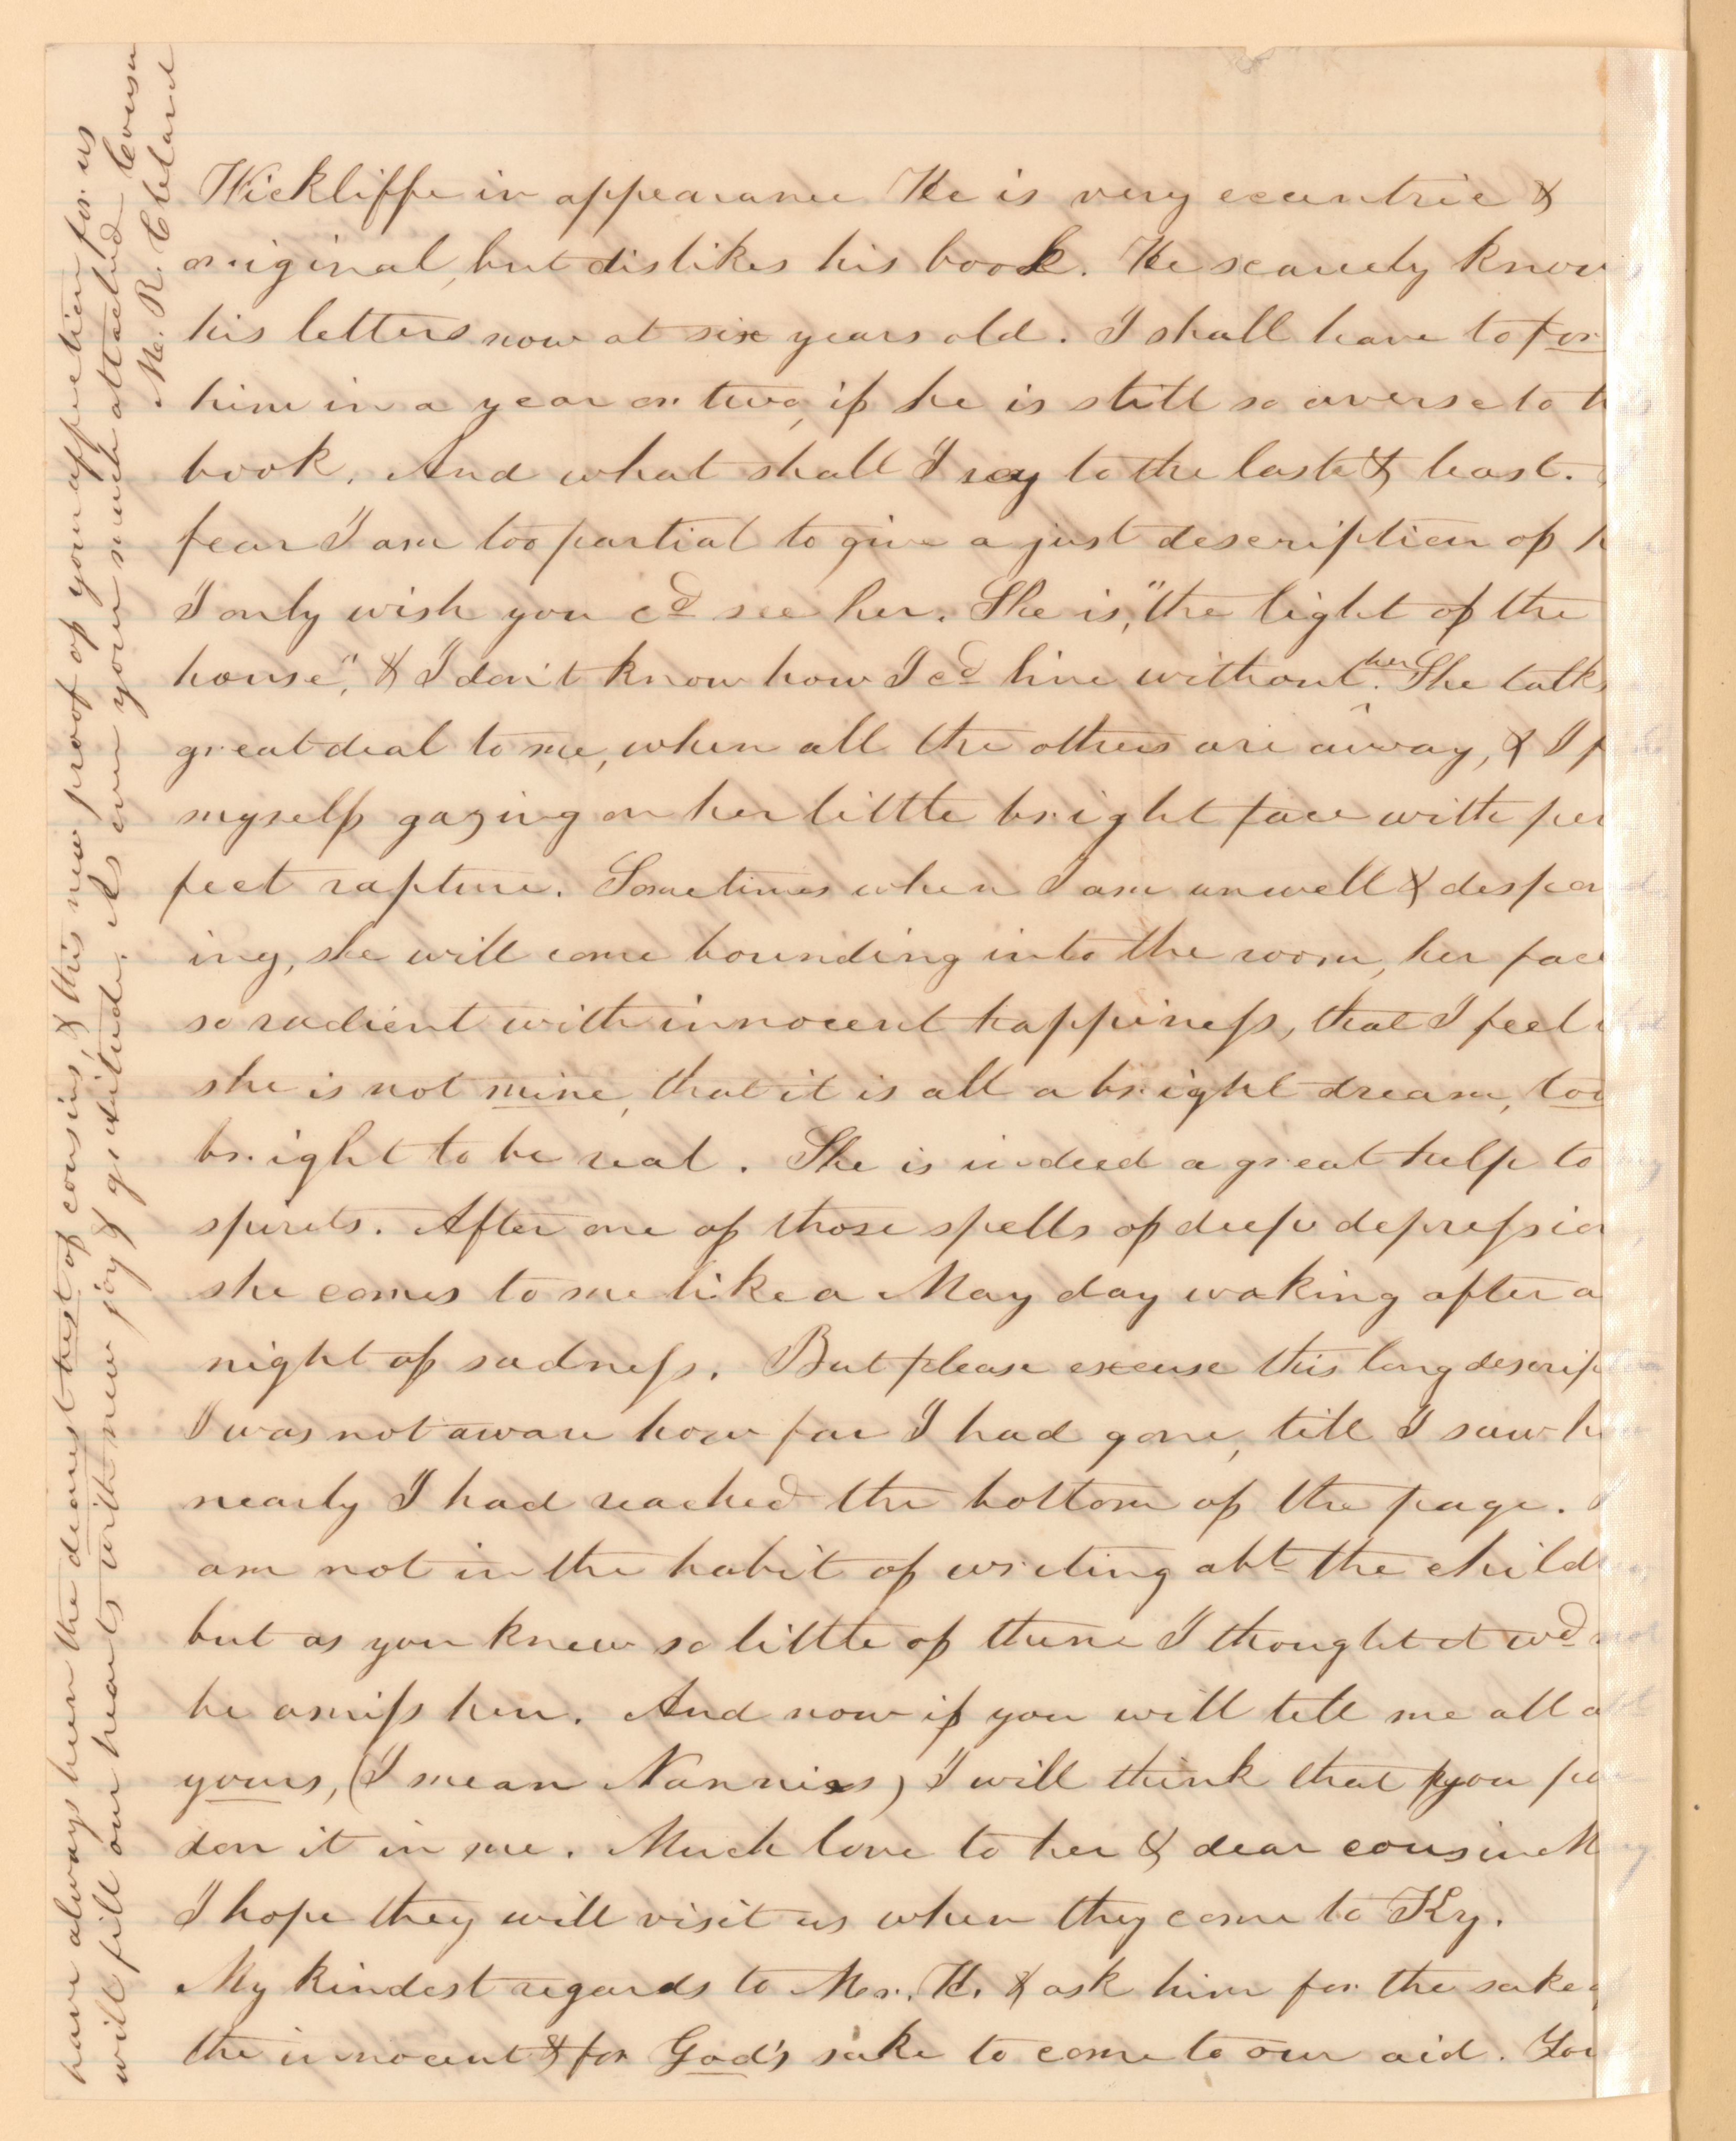 Wickliffe in appearance He is very eccentric &
original, but dislikes his book. He scarcely know
his letters now at six years old. I shall have to for
him in a year or two, if he is still so averse to th
book. And what shall I say to the last & least.
fear I am too partial to give a just description of h
I only wish you cd see her. She is, "the light of the
house", & I don't know how I cd live without her. She talks
great deal to me, when all the others are away, & I f
myself gazing on her little bright face with per
fect rapture. Sometimes when I am unwell & despon
ing, she will come bounding into the room, her fac
so radient with innocent happiness, that I feel
she is not mine, that it is all a bright dream, too
bright to be real. She is indeed a great help to
spirits. After one of those spells of deep depression
she comes to me like a May day waking after a
night of sadness. But please excuse this long descrip
I was not aware how far I had gone, till I saw h
nearly I had reached the bottom of the page.
am not in the habit of writing abt the child
but as you knew so little of them I thought it wd not
be amiss here. And now if you will tell me all a
yours, (I mean Nannies) I will think that you par
don it in me. Much love to her & dear cousin M
I hope they will visit us when they come to Ky.
My kindest regards to Mr. H. & ask him for the sake
the innocent & for God's sake to come to our aid. You
have always been the dearest best of cousins, & this new proof of your affection for us
will fill our hearts with new joy & gratitude. As ever your much attached Cousin
M. R. Cleland